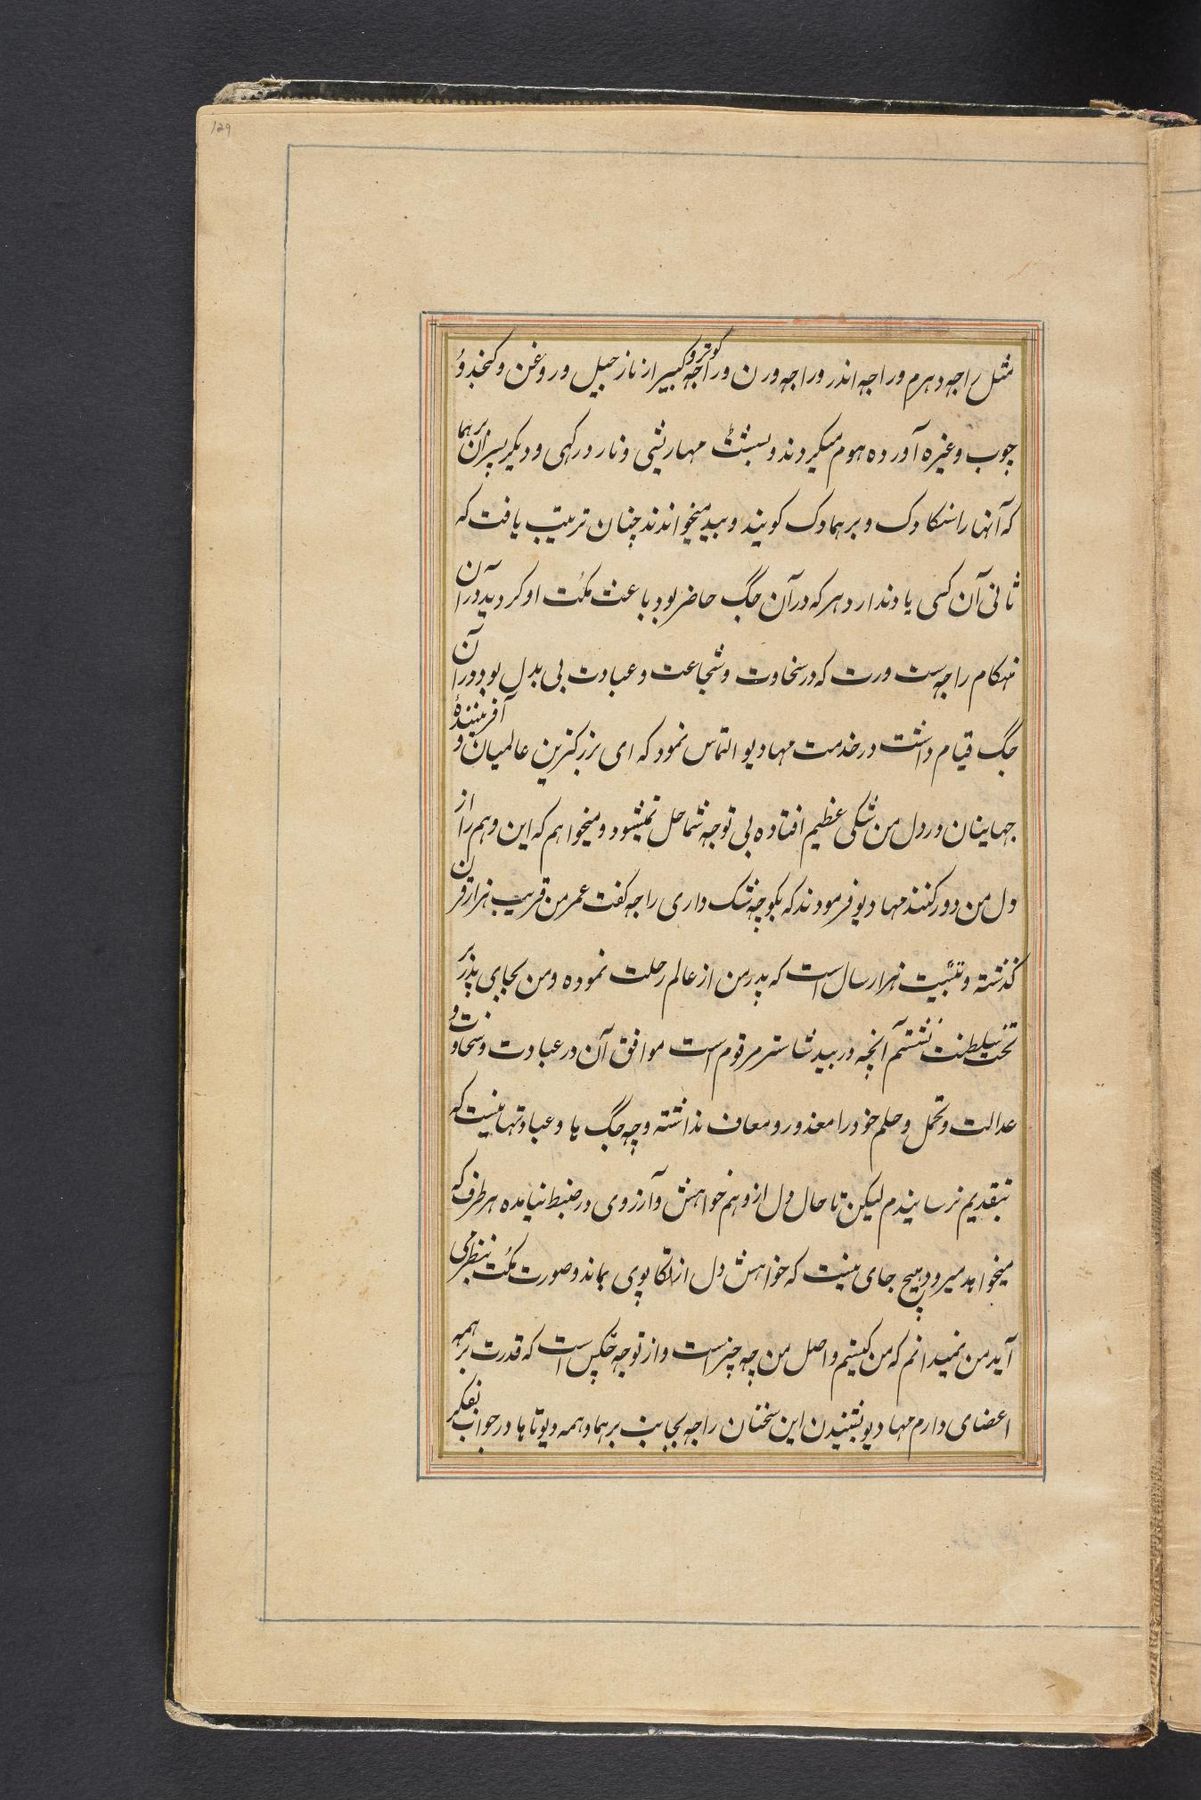 129
مثل راجه دهرم و راجه اندر و راجه ورن و راجه کوترو کبیر از نازجیل و روغن و کنجد و
چوب و غیره آورده هوم میکردند و بسشت مهاریشی و نارد رکهی و دیکر پسران برهما
که آنها را سنکادک و برهمادک کویند و بید میخواندند چنان ترتیب یافت که
ثانی آن کسی یاد ندارد هر که در آن جگ حاضر بود باعث مکت او کردید در آن
هنکام راجه ست ورت که در سخاوت و شجاعت و عبادت بی بدل بود در آن
جگ قیام داشت در خدمت مهادیو التماس نمود که ای بزرکترین عالمیان و آفریننده
جهانیان در دل من شکی عظیم افتاده بی توجه شما حل نمیشود و میخواهم که این وهم را از
دل من دور کنند مهادیو فرمودند که بکو چه شک داری راجه کفت عمر من قریب هزار قرن
کذشته و هزار سال است که پدر من از عالم رحلت نموده و من بجای پدر بر
تخت سلطنت نشستم آنچه در بید شاستر مرقوم است موافق آن در عبادت و سخاوت و
عدالت و تحمل و حلم خود را معذور و معاف نداشته و چه جگ ها و عبادتهاینست که
بتقدیم نرسانیدم لیکن تا حال دل از وهم خواهش و آرزوی در ضبط نیامده هر طرف که
میخواهد میرود هیچ جای نیست که خواهش دل از تکاپوی بماند و صورت مکت بنظر می
آید من نمیدانم که من کیستم و اصل من چه چیز است و از توجه کیست که قدرت بر همه
اعضای دارم مهادیو بشنیدن این سخنان راجه بجانب برهما و همه دیوتاها در جواب بفکر